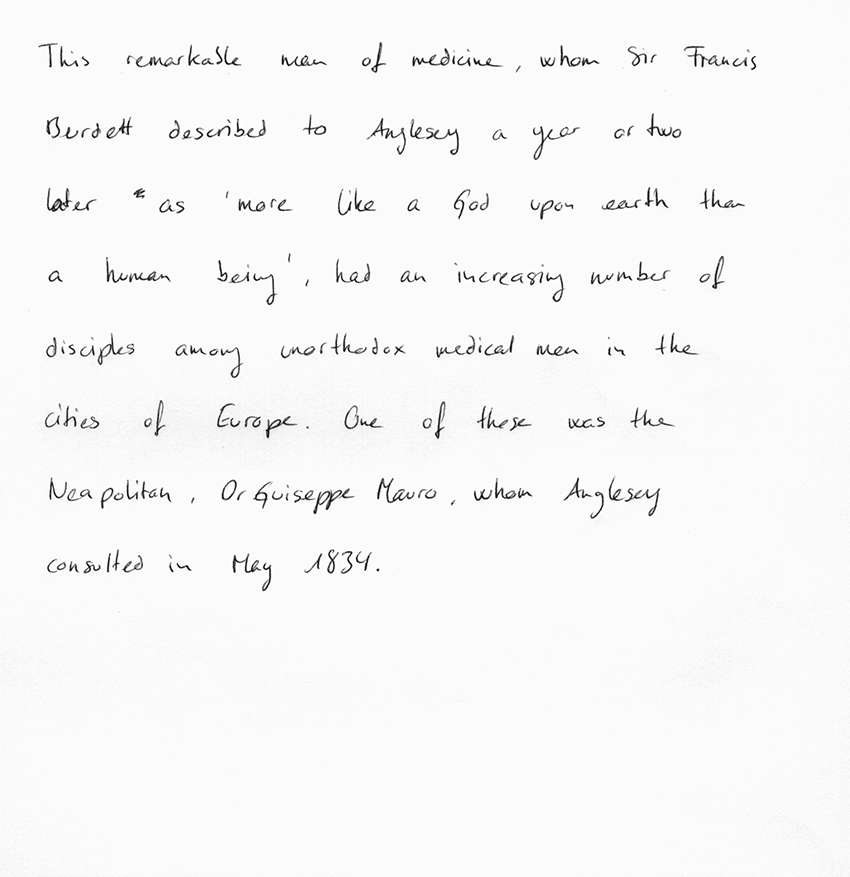 This remarkable man of medicine, whom Sir Francis
Burdett described to Anglesey a year or two
later as 'more like a God upon earth than
a human being', had an increasing number of
disciples among unorthodox medical men in the
cities of Europe. One of these was the
Neapolitan, Dr Guiseppe Mauro, whom Anglesey
consulted in May 1834.